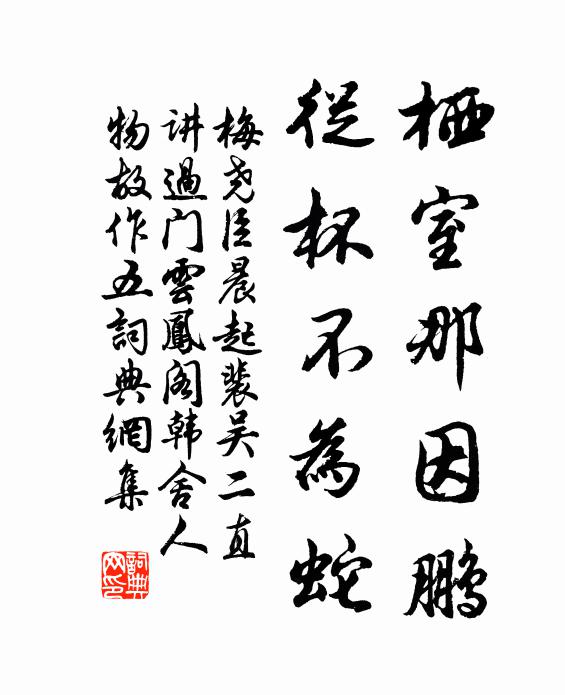 栖室那因鹏
従杯不為蛇
梅尧臣晨起裴吴二直
讲過门雲鳳阁韩舍人
物故作五詞典網集
詞典
网印